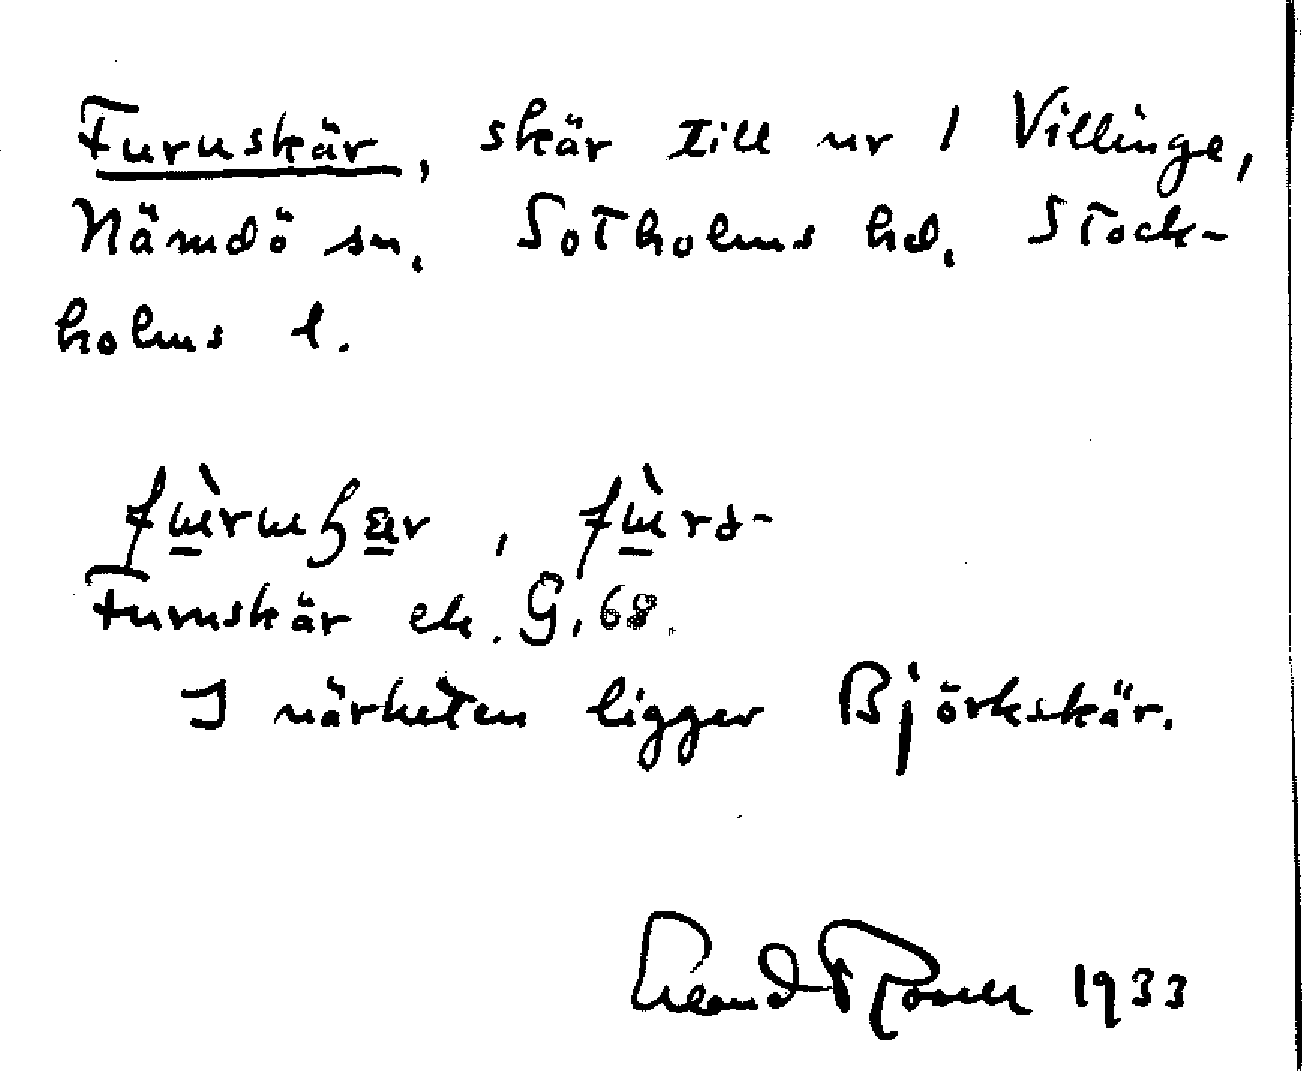 Furuskär, skär till nr 1 Villinge,
Nämdö sn, Sotholms hd, Stock-
holms l.
Furuskär ek. G. 68.
I närheten ligger Björkskär.
1933